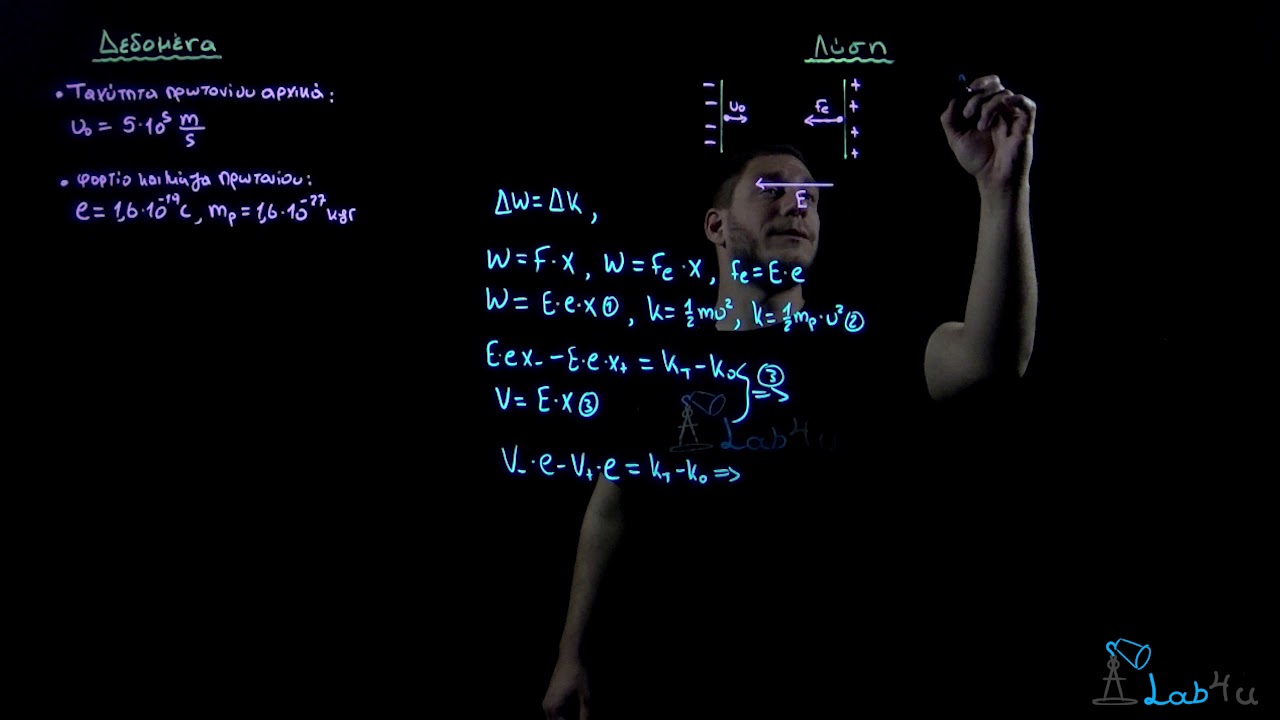 Δεδομένα
• Ταχύτητα πρωτονίου αρχικά:
υ₀ = 5·10⁵ m/s
• φορτίο και μάζα πρωτονίου:
e = 1,6·10⁻¹⁹ C, mₚ = 1,6·10⁻²⁷ kgr
Λύση
− − − −
υ₀
Fe
+ + + +
E
ΔW = ΔK,
W = F·X, W = Fe·X, Fe = E·e
W = E·e·X ①, K = ½mυ², K = ½mₚ·υ² ②
E·eX₋ − E·e·X₊ = Kτ − K₀
V = E·X ③
③ =>
V₋·e − V₊·e = Kτ − K₀ =>
Lab4u
Lab4u